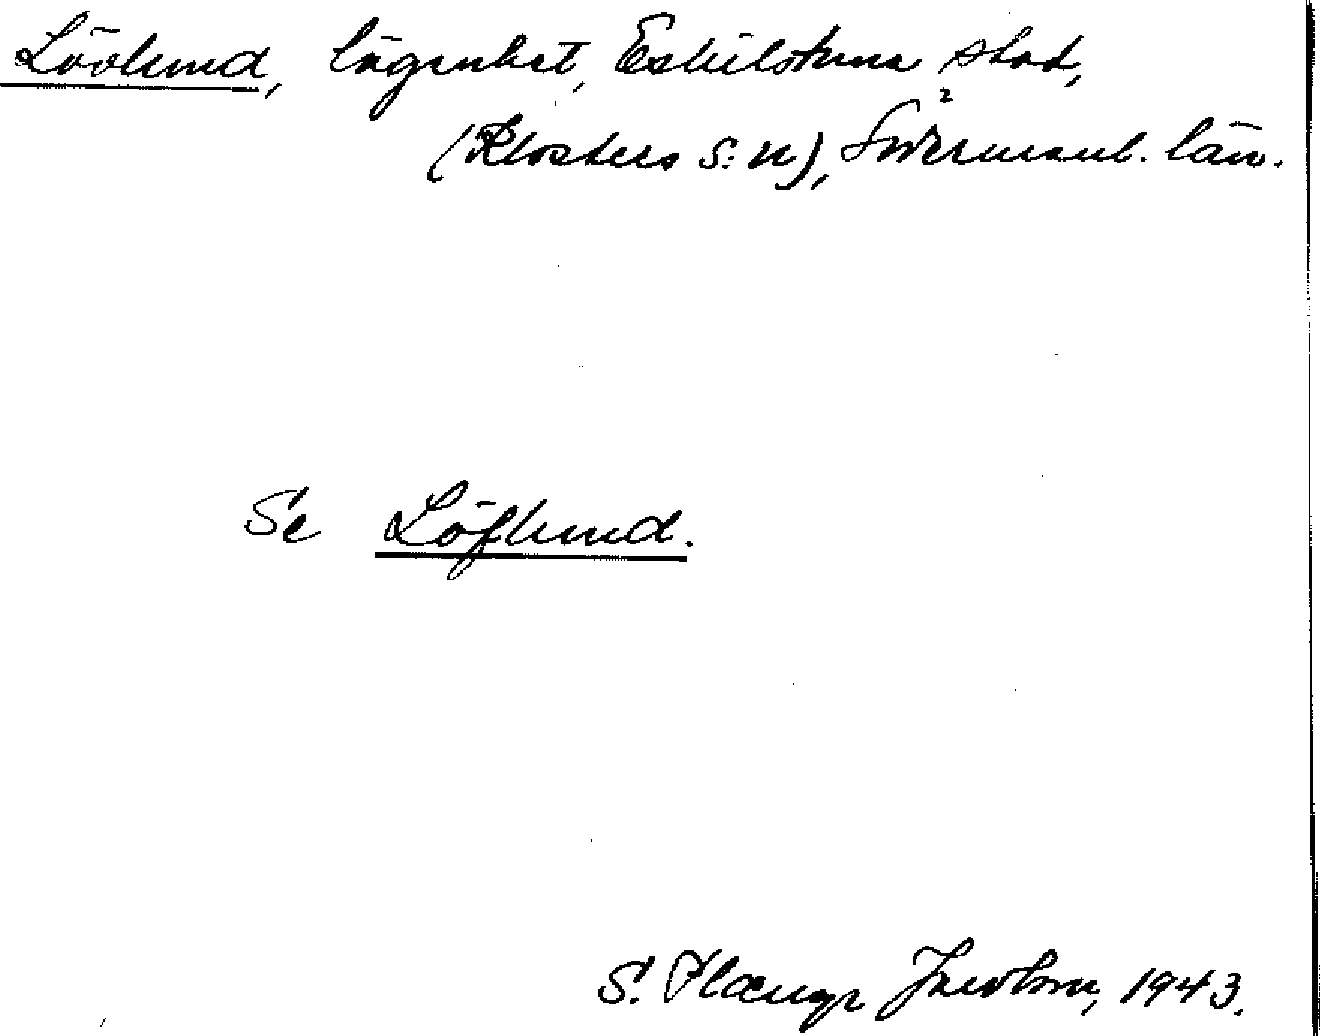 Lövlund, lägenhet, Eskilstuna stad,
(Klosters s:n), Södermanl. län.
Se Löflund.
S. 1943.